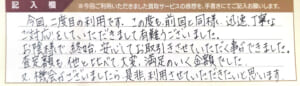 記入欄 ※今回ご利用いただきました買取サービスの感想を、手書きにてご記入お願いします。
今回、二度目の利用です。この度も前回と同様、迅速丁寧な
ご対応をしていただきまして有難うございました。
お陰様で終始、安心してお取引きさせていただく事ができました。
査定額も他しとくらべて大変、満足のいく金額でした。
又、機会がございましたら是非、利用させていただきたいと思います。